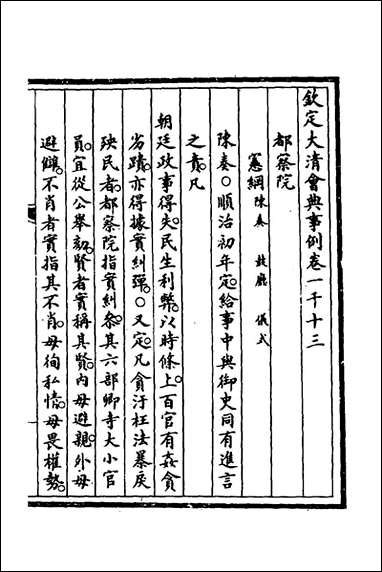 欽定大清會典事例卷一千十三
都察院
憲綱陳奏 鼓廳 儀式
陳奏〇順治初年定給事中與御史同有進言
之責凡
朝廷政事得失民生利弊以時條上百官有姦貪
劣蹟亦得據實糾彈〇又定凡貪汙枉法暴戾
殃民者都察院指實糾參其六部卿寺大小官
員宜從公舉劾賢者實稱其賢內毋避親外毋
避讎不肖者實指其不肖毋徇私情毋畏權勢